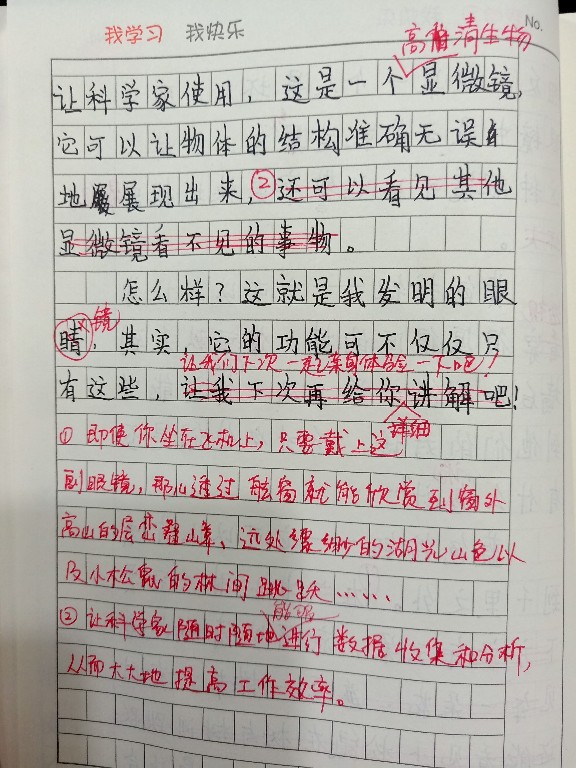 我学习 我快乐
No.
高清生物
让科学家使用，这是一个显微镜，
它可以让物体的结构准确无误
地展现出来，②还可以看见其他
显微镜看不见的事物。
怎么样？这就是我发明的眼
镜
睛，其实，它的功能可不仅仅只
让我们下次一起亲身体验一下吧！
有这些，让我下次再给你讲解吧！
详细
① 即使你坐在飞机上，只要戴上这
副眼镜，那么透过舷窗就能欣赏到窗外
高山的层峦叠山、远处缥缈的湖光山色以
及小松鼠的林间跳跃……
能够
② 让科学家随时随地进行数据收集和分析，
从而大大地提高工作效率。